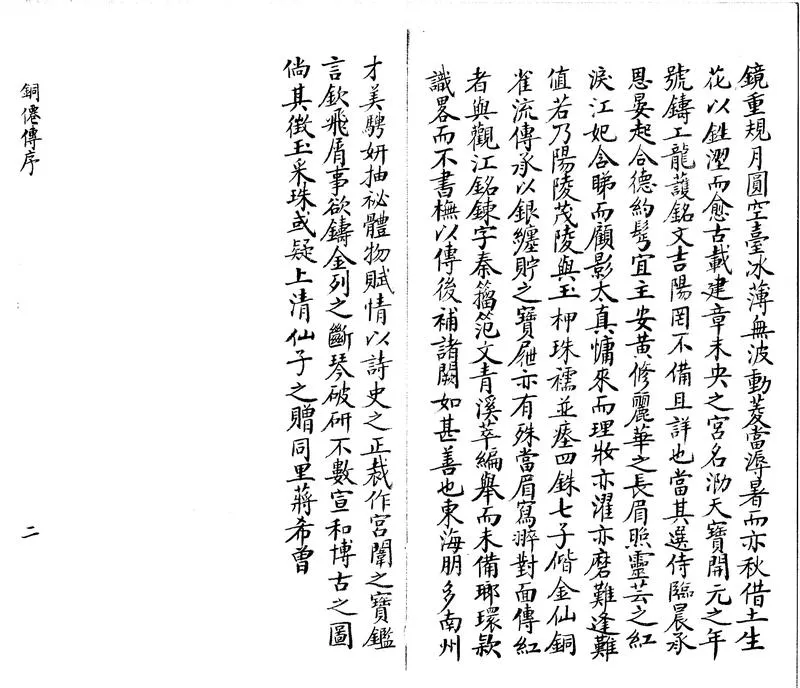 鏡重規月圓空臺冰薄無波動菱當溽暑而亦秋借土生
花以鉎澀而愈古載建章未央之宮名泐天寶開元之年
號鑄工龍護銘文吉陽罔不備且詳也當其選侍臨晨承
恩晏起合德約髩宜主安黃修麗華之長眉照靈芸之紅
淚江妃含睇而顧影太真慵來而理妝亦濯亦磨難逢難
值若乃陽陵茂陵與玉柙珠襦並瘞四銖七子偕金仙銅
雀流傳承以銀纏貯之寶屜亦有殊當眉寫翠對面傳紅
者與觀江銘鍊字秦籀范文青溪萃編舉而未備瑯環款
識畧而不書橅以傳後補諸闕如甚善也東海朋多南州
才美騁妍抽祕體物賦情以詩史之正裁作宮闈之寶鑑
言欽飛屑事欲鑄金列之斷琴破研不數宣和博古之圖
尚其徵玉采珠或疑上清仙子之贈同里蔣希曾
銅僊傳序
二